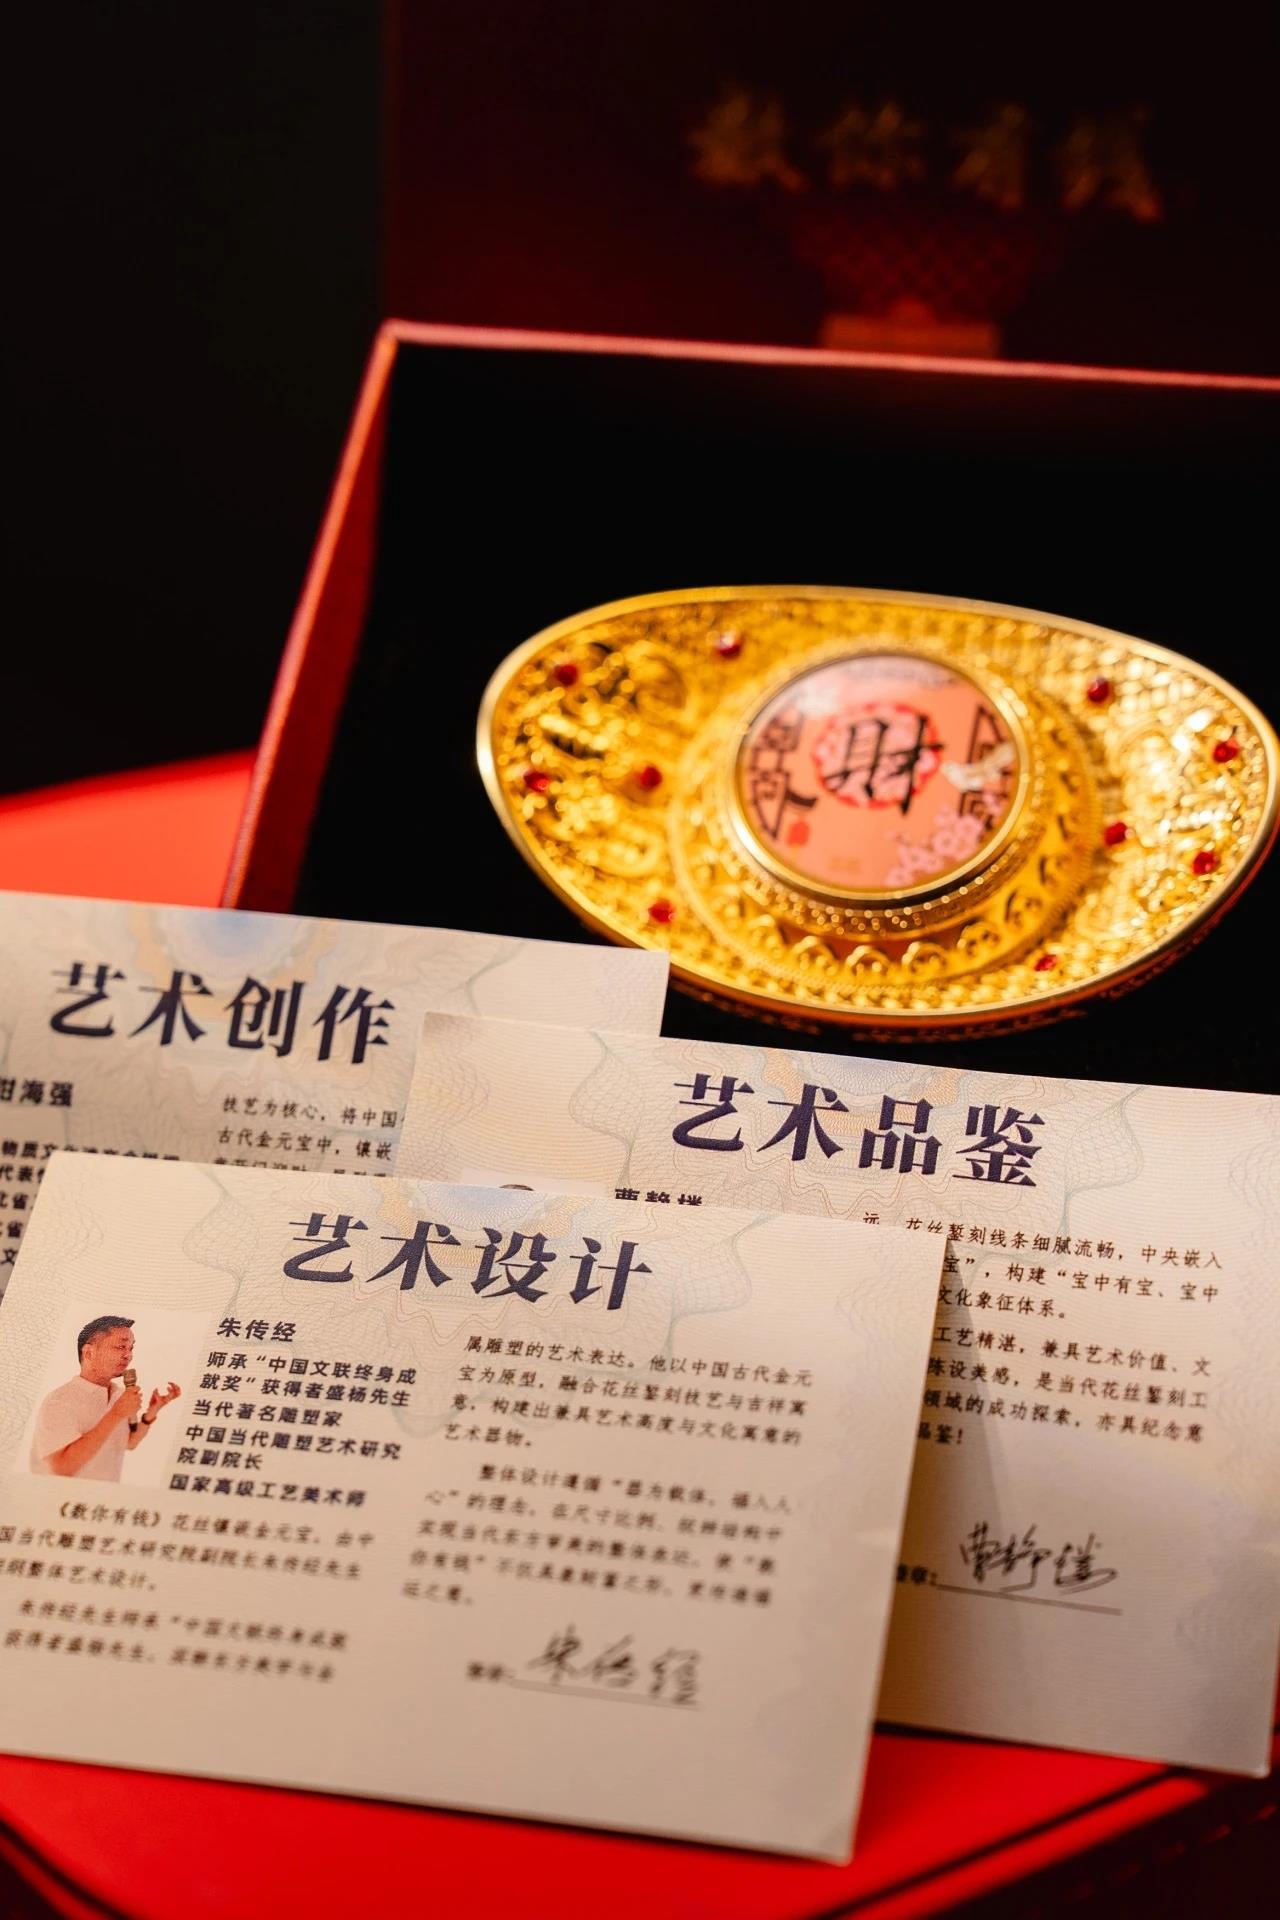 数你有钱
财
艺术创作
甜海强
技艺为核心，将中国
古代金元宝中，镶嵌
艺术品鉴
曹静楼
远，花丝錾刻线条细腻流畅，中央嵌入
宝”，构建“宝中有宝、宝中
文化象征体系。
工艺精湛，兼具艺术价值、文
陈设美感，是当代花丝錾刻工
领域的成功探索，亦具纪念意
品鉴！
曹静楼
艺术设计
朱传经
师承“中国文联终身成
就奖”获得者盛杨先生
当代著名雕塑家
中国当代雕塑艺术研究
院副院长
国家高级工艺美术师
《数你有钱》花丝镶嵌金元宝，由中
国当代雕塑艺术研究院副院长朱传经先生
担纲整体艺术设计。
朱传经先生师承“中国文联终身成就
获得者盛杨先生，深耕东方美学与金
属雕塑的艺术表达。他以中国古代金元
宝为原型，融合花丝錾刻技艺与吉祥寓
意，构建出兼具艺术高度与文化寓意的
艺术器物。
整体设计遵循“器为载体，福入人
心”的理念，在尺寸比例、纹饰结构中
实现当代东方审美的整体表达，使“数
你有钱”不仅具象财富之形，更传递福
运之意。
签章：朱传经